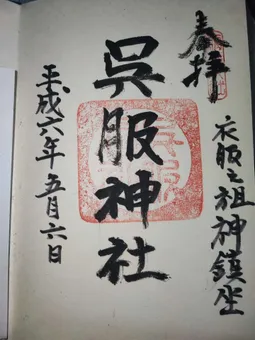 奉拝
衣服之祖神鎮坐
呉服神社
平成六年五月六日